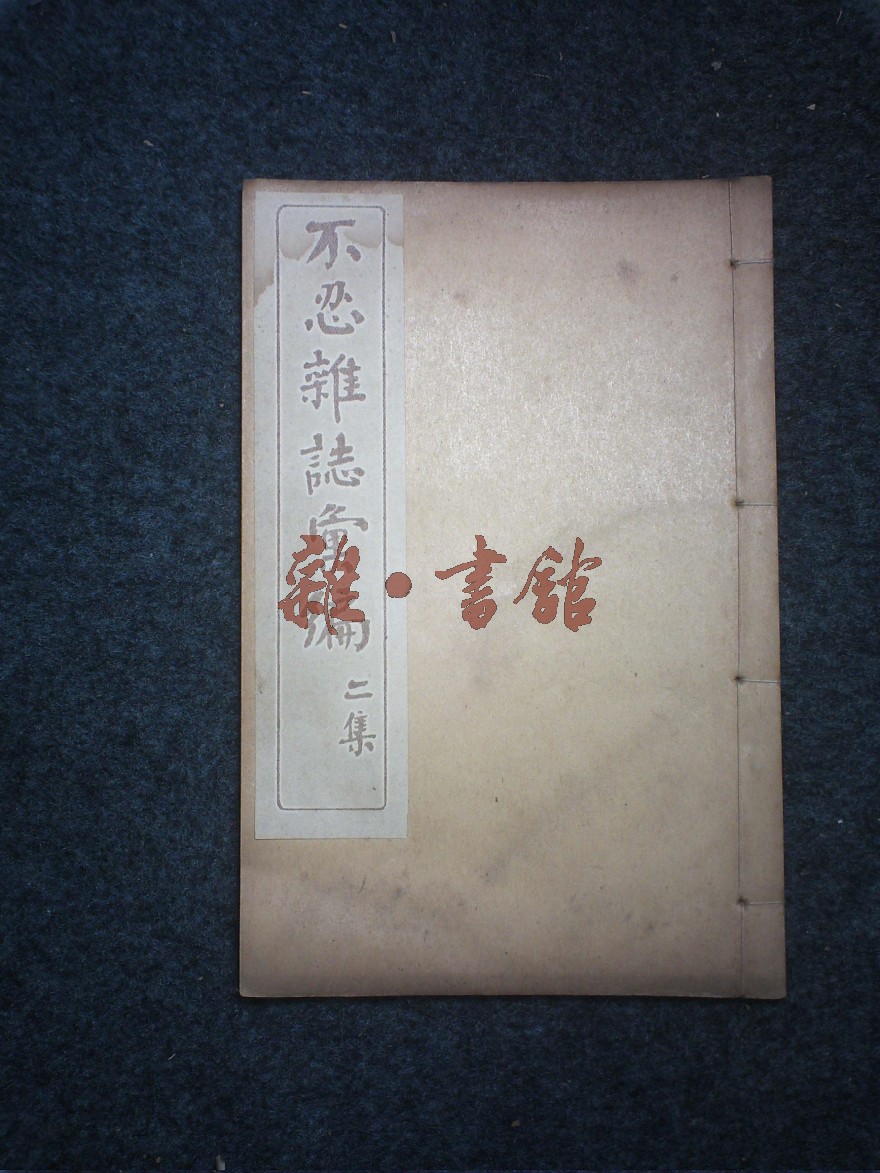 不忍雜誌彙編
二集
雜·書館